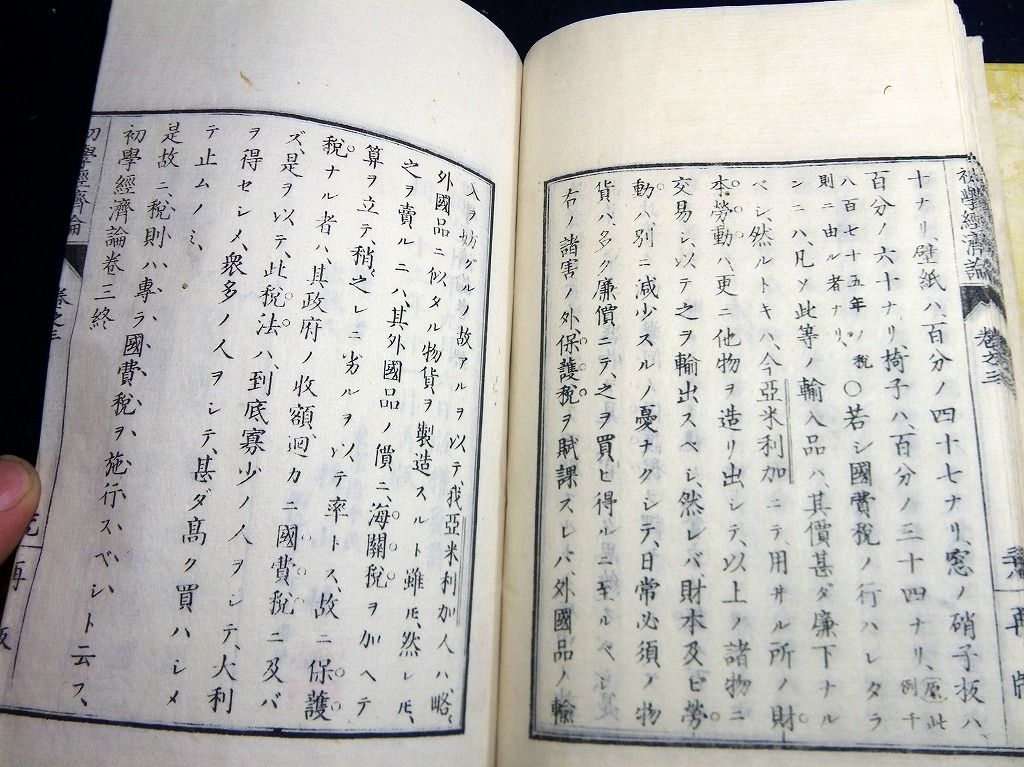 初學經濟論
卷之三
再 版
十ナリ、壁紙ハ、百分ノ四十七ナリ、窓ノ硝子板ハ、
百分ノ六十ナリ、掎子ハ、百分ノ三十四ナリ、原此例千
八百七十五年ノ税則ニ由ル者ナリ、○若シ國費税ノ行ハレタラ
ンニハ、凡ソ此等ノ輸入品ハ、其價甚ダ廉下ナル
ベシ、然ルトキハ、今亞米利加ニテ、用井ル所ノ財
本勞動ハ、更ニ他物ヲ造リ出シテ、以上ノ諸物ニ
交易シ、以テ之ヲ輸出スベシ、然レバ財本及ビ勞
動ハ別ニ減少スルノ憂ナクシテ、日常必須ノ物
貨ハ、多ク廉價ニテ、之ヲ買ヒ得ルニ至ルベシ、
右ノ諸害ノ外、保護税ヲ賦課スレバ、外國品ノ輸
入ヲ妨グルノ故アルヲ以テ、我亞米利加人ハ、略、
外國品ニ似タル物貨ヲ製造スルト雖𪜈、然レ𪜈、
之ヲ賣ルニハ、其外國品ノ價ニ、海關税ヲ加ヘテ
算ヲ立テ、稍之レニ劣ルヲ以テ率トス、故ニ保護
税ナル者ハ、其政府ノ收額迥カニ國費税ニ及バ
ズ、是ヲ以テ、此税法ハ、到底寡少ノ人ヲシテ、大利
ヲ得セシメ、衆多ノ人ヲシテ、甚ダ高ク買ハシメ
テ止ムノミ、
是故ニ、税則ハ、專ラ國費税ヲ、施行スベシト云フ、
初學經濟論卷三終
初學經濟論
卷之三
再 版